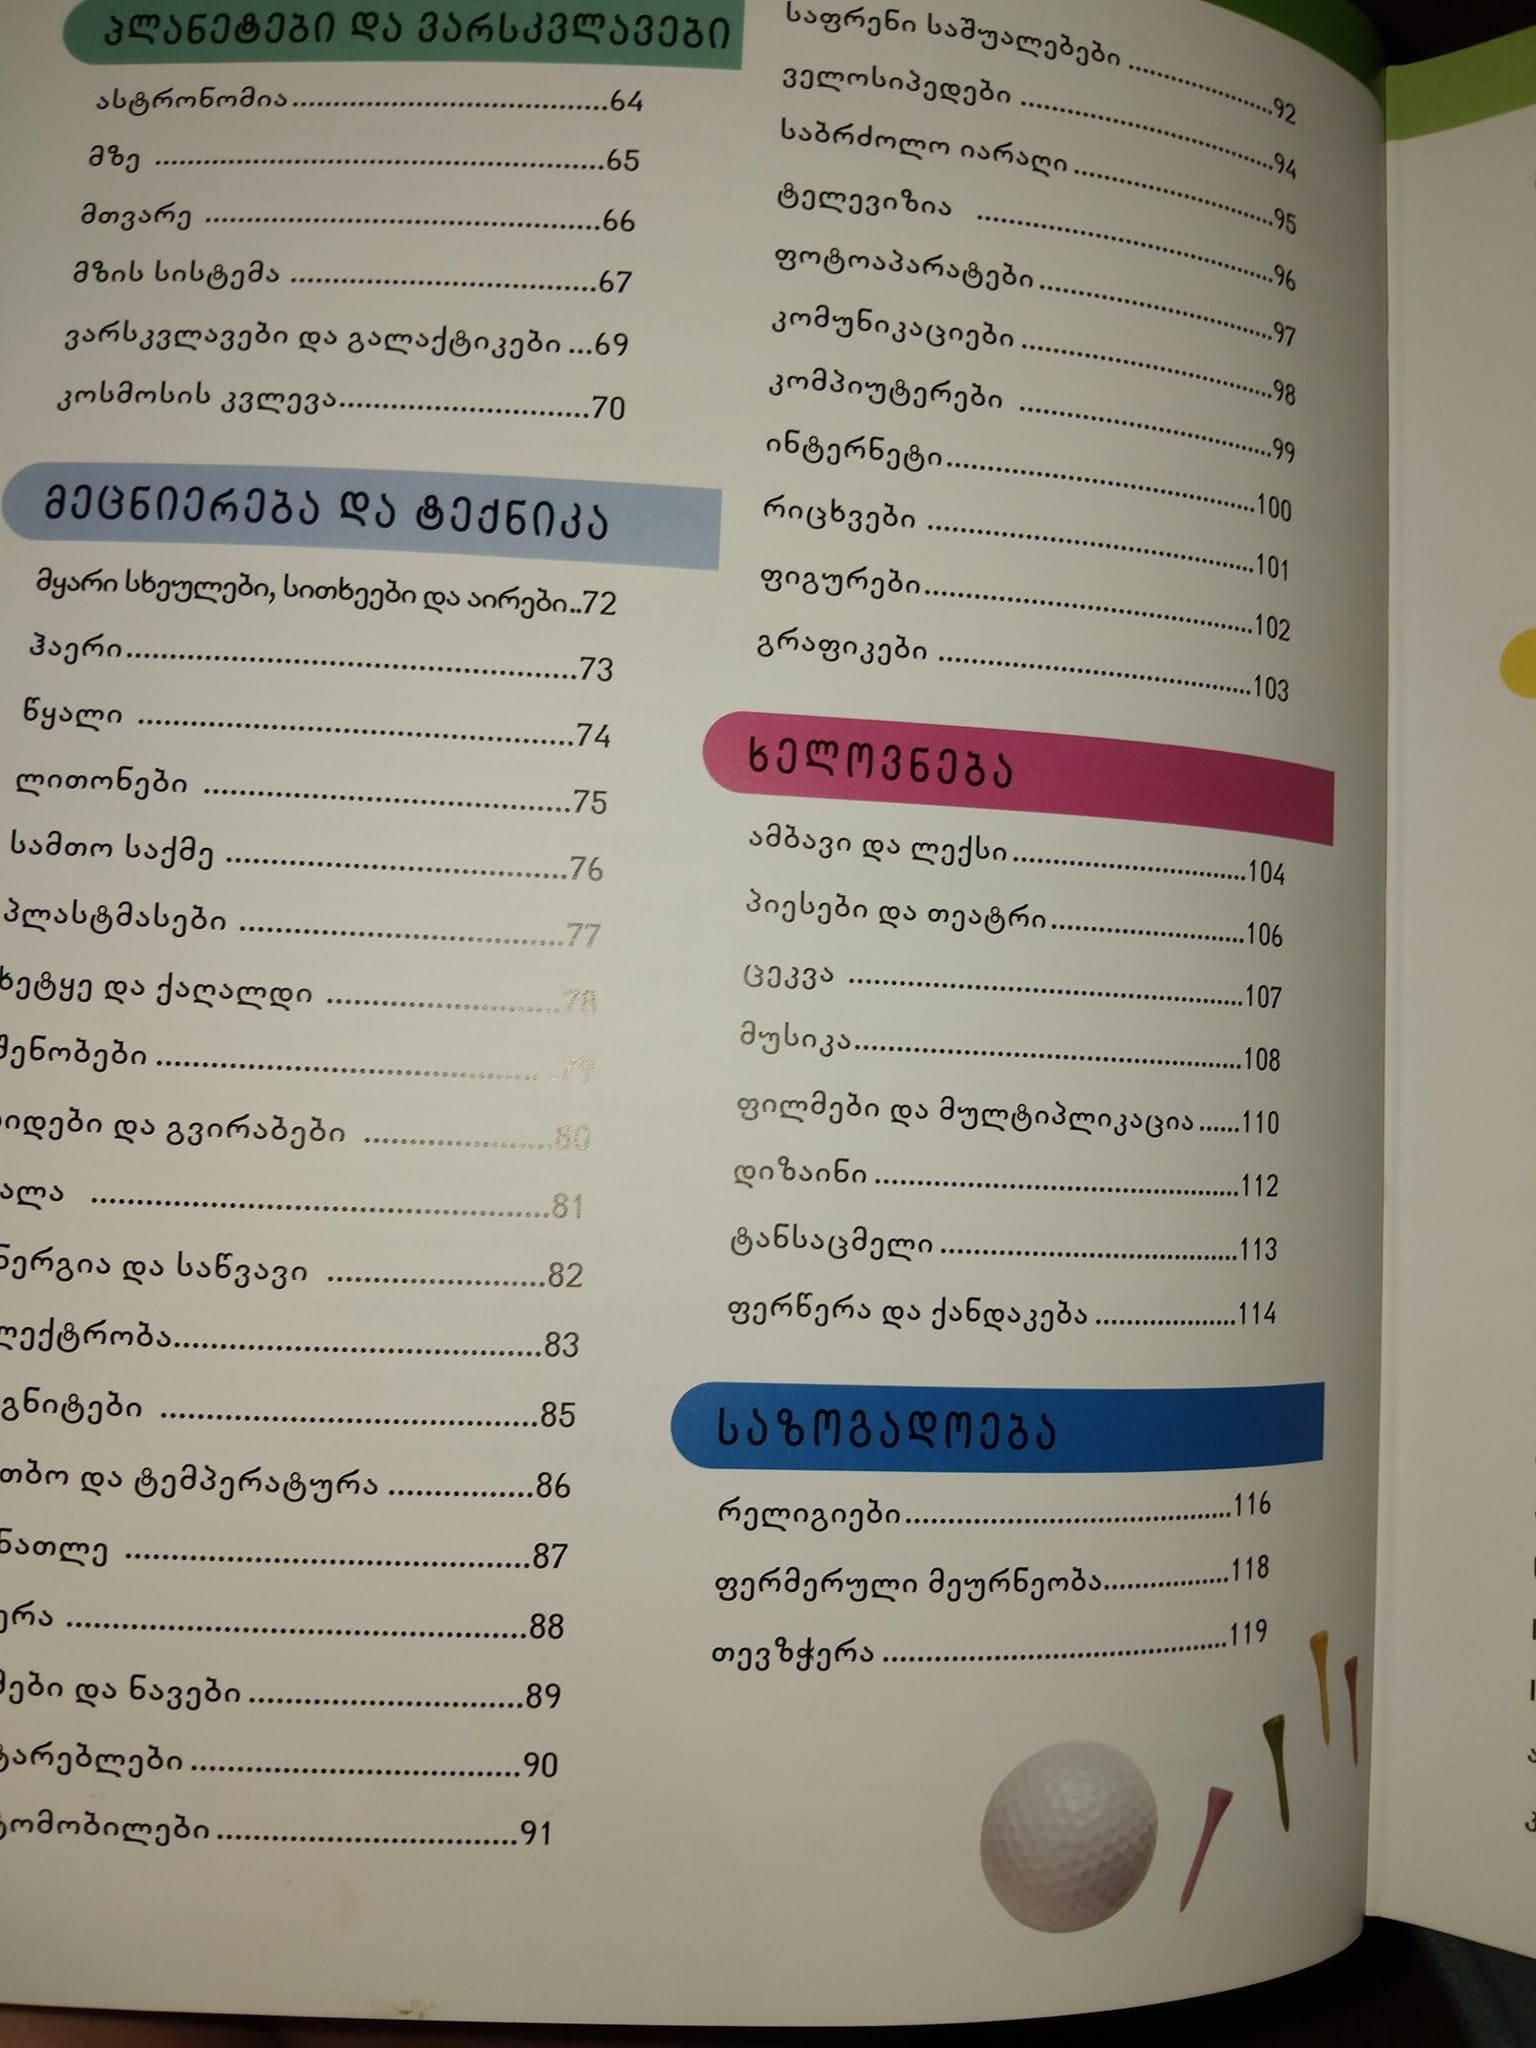 პლანეტები და ვარსკვლავები
ასტრონომია....................................64
მზე ....................................65
მთვარე ....................................66
მზის სისტემა ....................................67
ვარსკვლავები და გალაქტიკები ...69
კოსმოსის კვლევა....................................70
მეცნიერება და ტექნიკა
მყარი სხეულები, სითხეები და აირები..72
ჰაერი....................................73
წყალი ....................................74
ლითონები ....................................75
სამთო საქმე ....................................76
პლასტმასები ....................................77
ხეტყე და ქაღალდი ....................................78
შენობები ....................................79
და გვირაბები ....................................80
....................................81
და საწვავი ....................................82
....................................83
....................................85
და ტემპერატურა ................86
....................................87
....................................88
და ნავები ....................................89
....................................90
....................................91
საფრენი საშუალებები ....................92
ველოსიპედები ....................................94
საბრძოლო იარაღი ....................................95
ტელევიზია ....................................96
ფოტოაპარატები ....................................97
კომუნიკაციები ....................................98
კომპიუტერები ....................................99
ინტერნეტი....................................100
რიცხვები ....................................101
ფიგურები....................................102
გრაფიკები ....................................103
ხელოვნება
ამბავი და ლექსი ....................................104
პიესები და თეატრი....................................106
ცეკვა ....................................107
მუსიკა....................................108
ფილმები და მულტიპლიკაცია ......110
დიზაინი ....................................112
ტანსაცმელი ....................................113
ფერწერა და ქანდაკება ....................114
საზოგადოება
რელიგიები....................................116
ფერმერული მეურნეობა..................118
თევზჭერა ....................................119